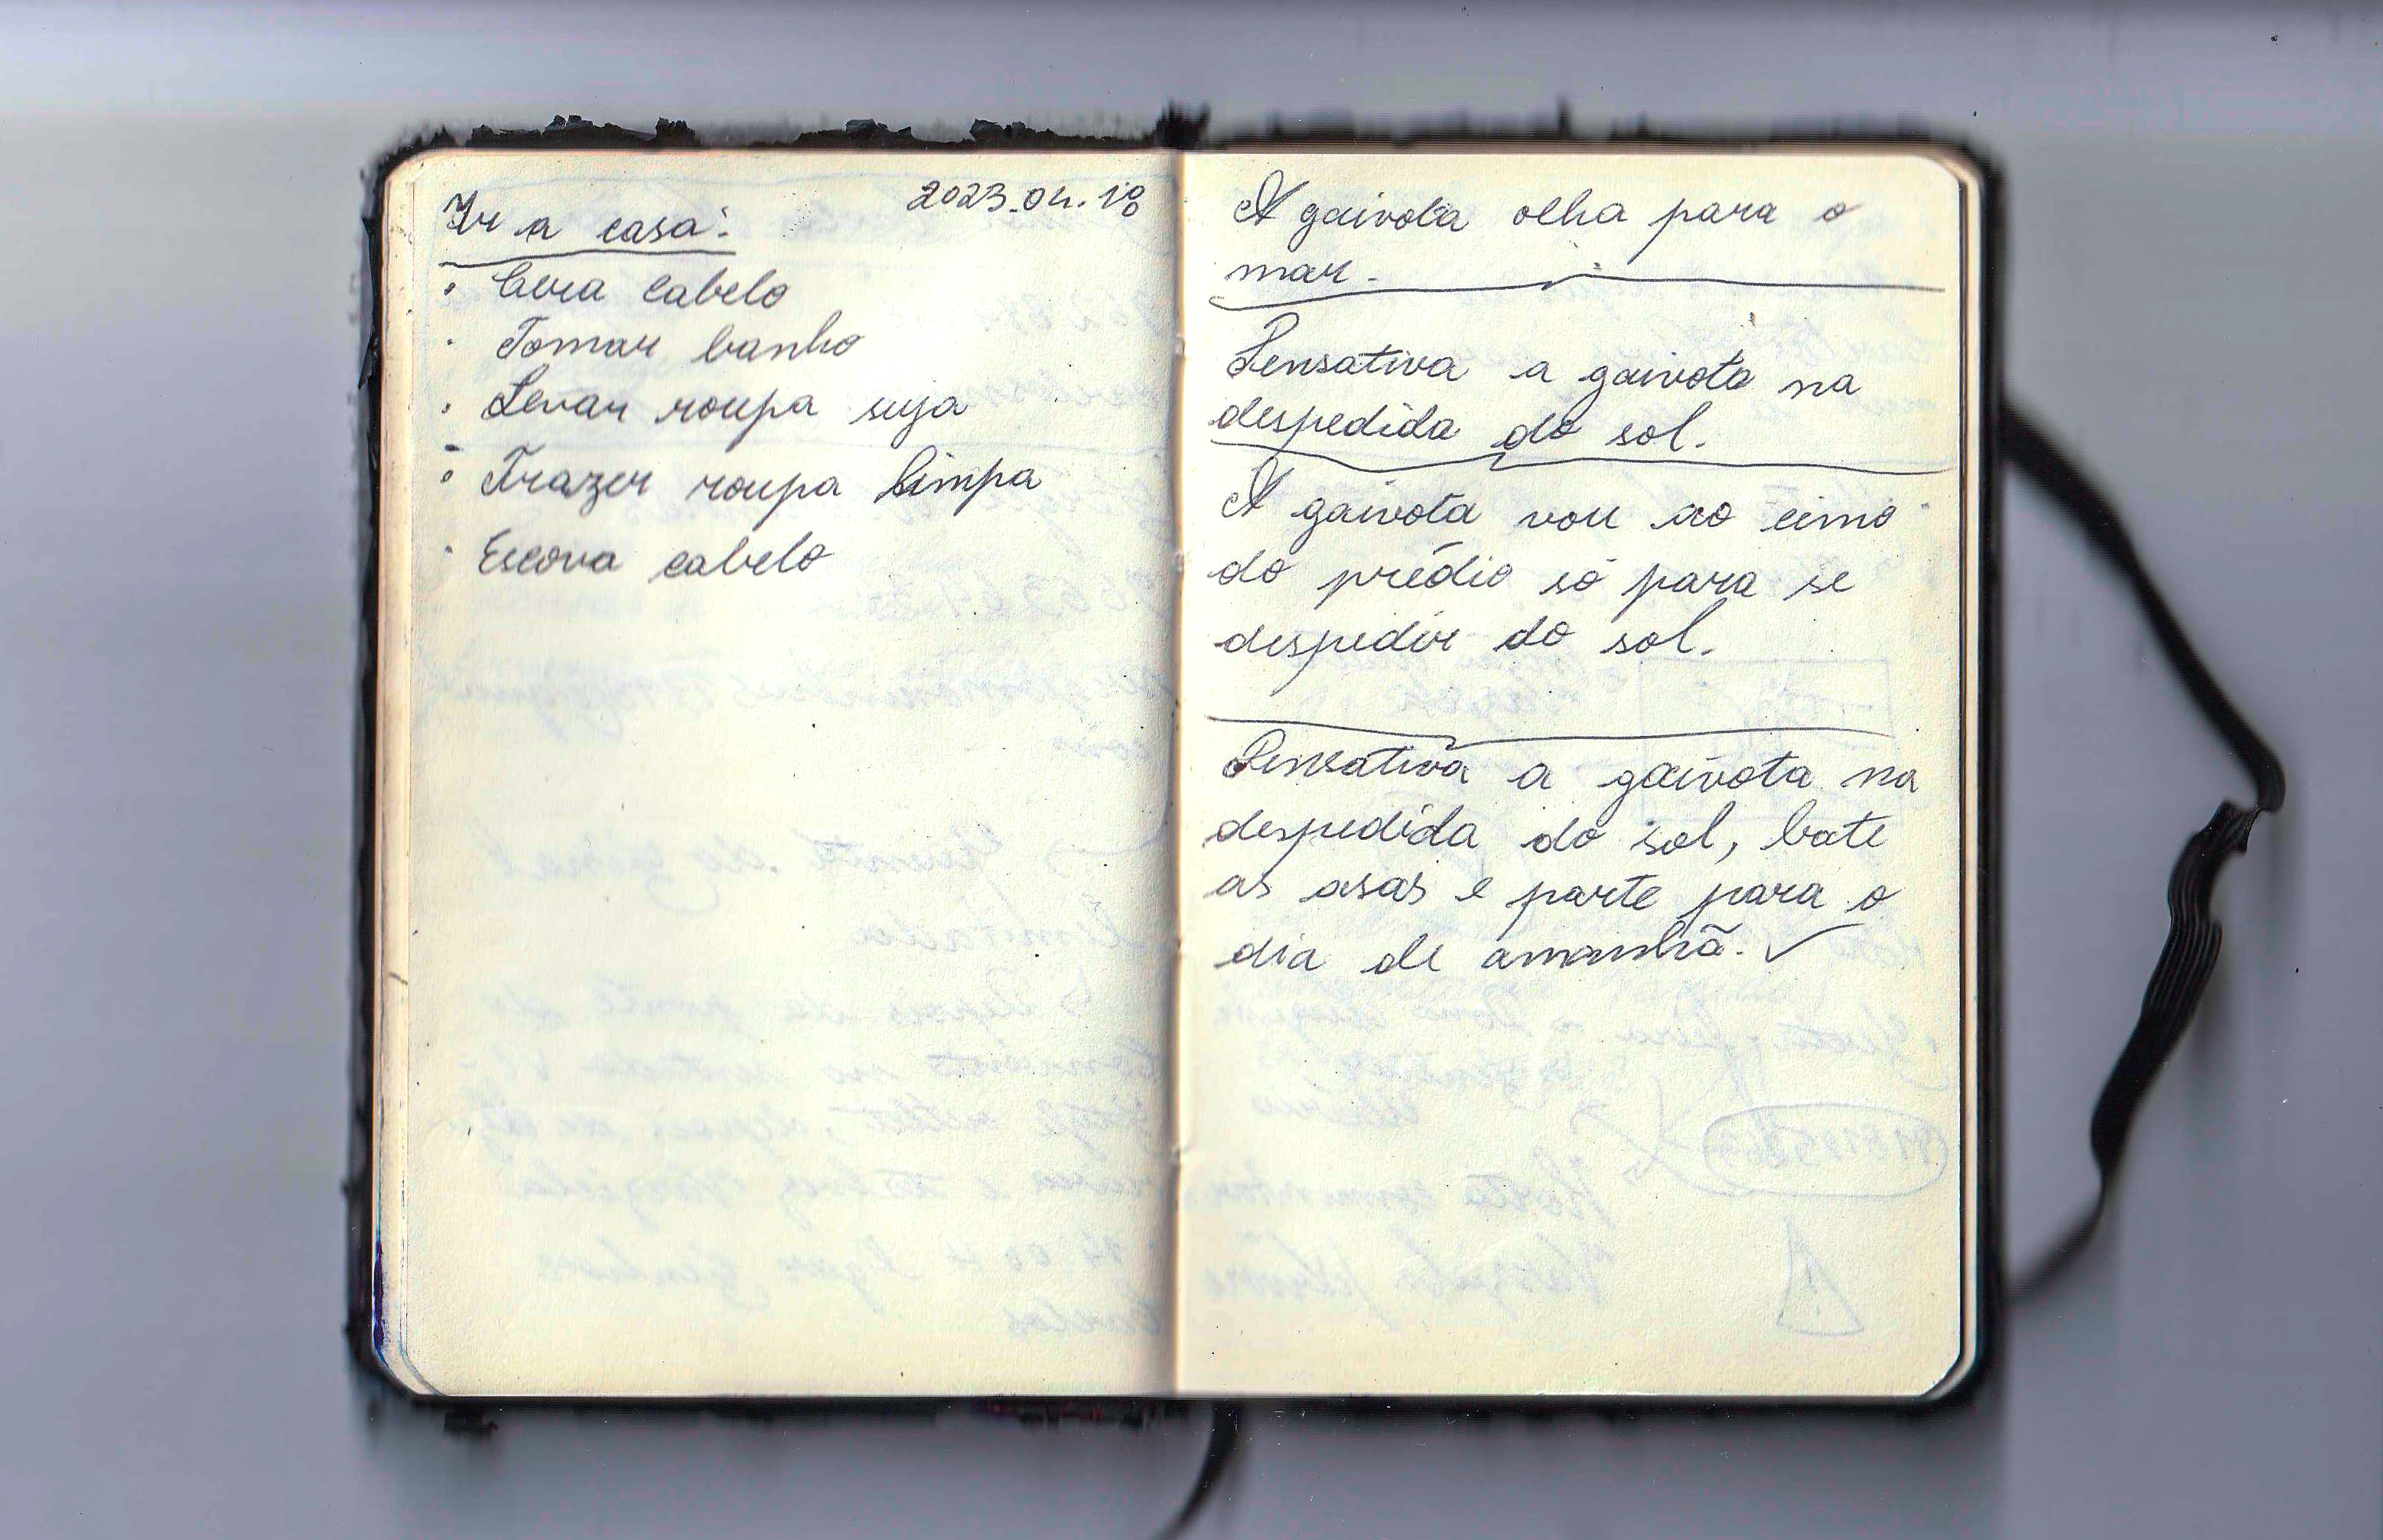 2023.04.18
Ir a casa:
· Cera cabelo
· Tomar banho
· Levar roupa suja
· Trazer roupa limpa
· Escova cabelo
A gaivota olha para o
mar.
Pensativa a gaivota na
despedida do sol.
A gaivota vou ao cimo
do prédio só para se
despedir do sol.
Pensativa a gaivota na
despedida do sol, bate
as asas e parte para o
dia de amanhã. ✓